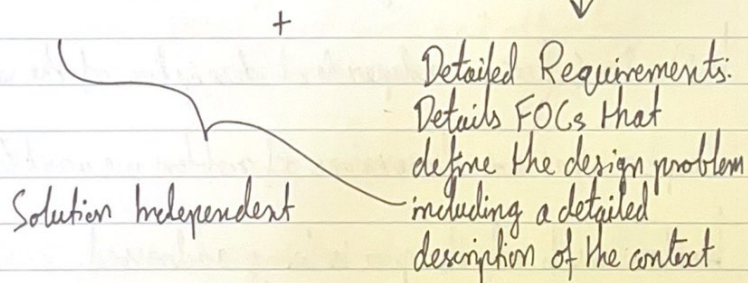 +
Detailed Requirements:
Details FOCs that
define the design problem
including a detailed
description of the context
Solution Independent